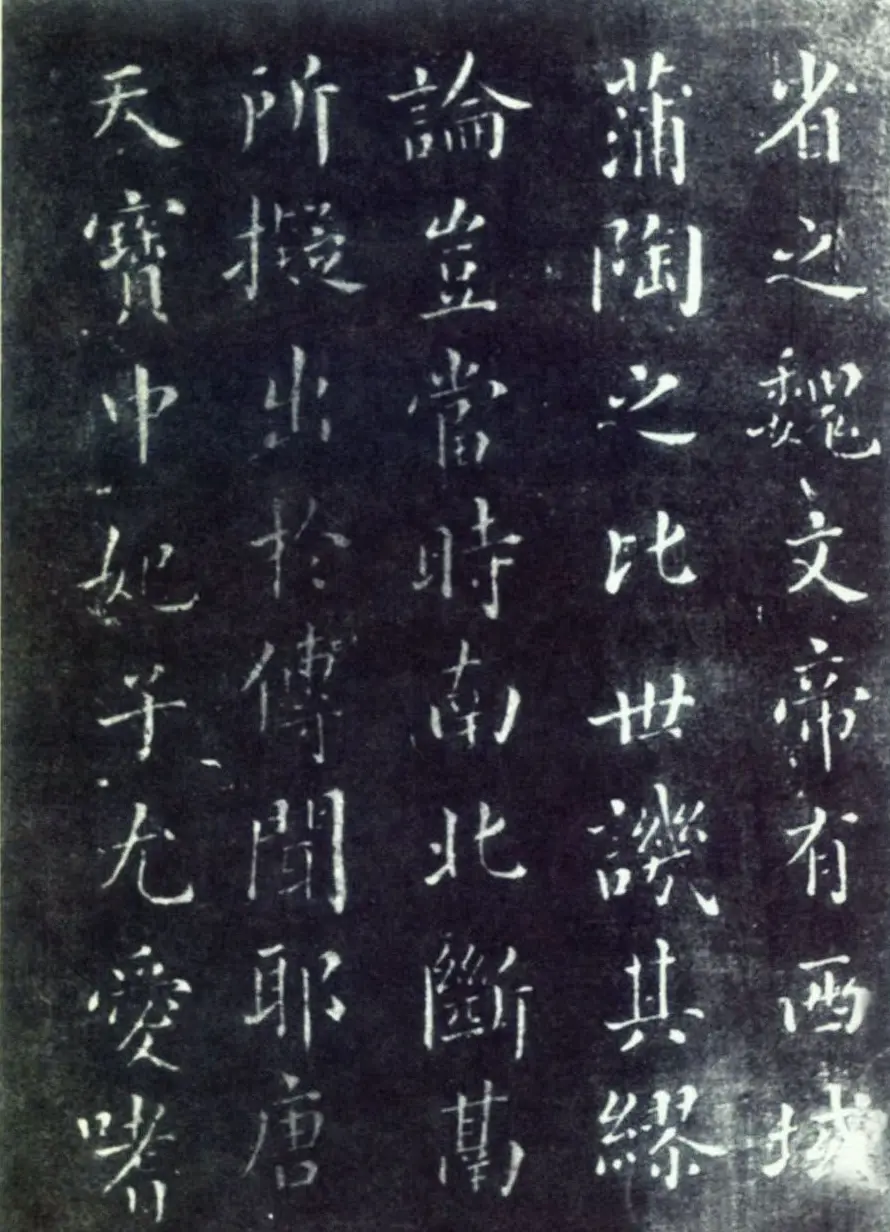 省之魏文帝有西域
蒲陶之比世譏其繆
論豈當時南北斷鬲
所擬出於傳聞耶唐
天寶中妃子尤愛嗜